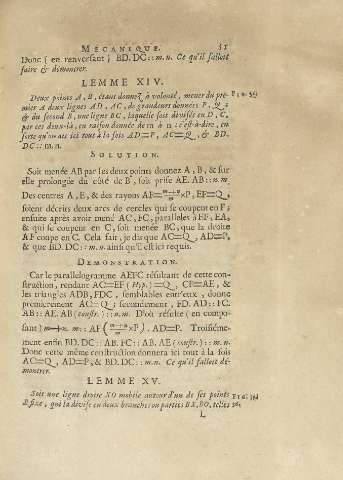 MECANIQUE. 81
Donc (en renversant) BD. DC :: m. n. Ce qu'il falloit
faire & démontrer.
LEMME XIV.
Deux points A, B, étant donnez à volonté, mener du pre-
mier A deux lignes AD, AC, de grandeurs données P, Q;
& du second B, une ligne BC, laquelle soit divisée en D, C,
par ces deux-là, en raison donnée de m à n : c'est-à-dire, en
sorte qu'on ait ici tout à la fois AD=P, AC=Q, & BD.
DC :: m. n.
SOLUTION.
Soit menée AB par les deux points donnez A, B, & sur
elle prolongée du côté de B, soit prise AE. AB :: n. m.
Des centres A, E, & des rayons AF=m+n/m×P, EF=Q,
soient décrits deux arcs de cercles qui se coupent en F;
ensuite après avoir mené AC, FC, paralleles à EF, EA,
& qui se coupent en C, soit menée BC, que la droite
AF coupe en C. Cela fait, je dis que AC=Q, AD=P,
& que BD. DC :: m. n. ainsi qu'il est ici requis.
DEMONSTRATION.
Car le parallelogramme AEFC résultant de cette con-
struction, rendant AC=EF (Hyp.) =Q, CF=AE, &
les triangles ADB, FDC, semblables entr'eux, donne
premierement AC=Q; secondement, FD. AD :: FC.
AB :: AE. AB (constr.) :: n. m. D'où résulte (en compo-
sant) m+n. m :: AF (m+n/m×P). AD=P. Troisiéme-
ment enfin BD. DC :: AB. FC :: AB. AE (constr.) :: m. n.
Donc cette même construction donnera ici tout à la fois
AC=Q, AD=P, & BD. DC :: m. n. Ce qu'il falloit dé-
montrer.
LEMME XV.
Soit une ligne droite XO mobile autour d'un de ses points
B fixe, qui la divise en deux branches ou parties BX, BO, telles
L